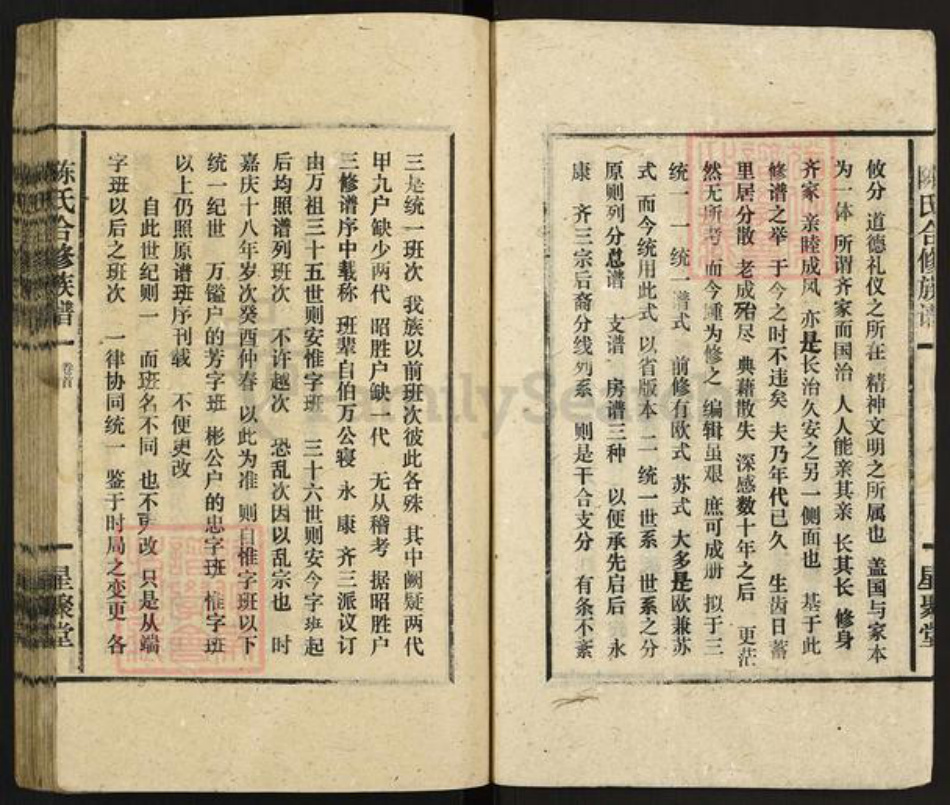 攸分 道德礼仪之所在 精神文明之所属也 盖国与家本
为一体 所谓齐家而国治 人人能亲其亲 长其长 修身
齐家 亲睦成风 亦是长治久安之另一侧面也 基于此
修谱之举 于今之时不违矣 夫乃年代已久 生齿日蕃
里居分散 老成殆尽 典藉散失 深感数十年之后 更茫
然无所考 而今踵为修之 编辑虽艰 庶可成册 拟于三
统一 一 统一谱式 前修有欧式 苏式 大多是欧兼苏
式 而今统用此式 以省版本 二 统一世系 世系之分
原则列分总谱 支谱 房谱三种 以便承先启后 永
康 齐三宗后裔分线列系 则是干合支分 有条不紊
三是统一班次 我族以前班次彼此各殊 其中阙疑两代
甲九户缺少两代 昭胜户缺一代 无从稽考 据昭胜户
三修谱序中载称 班辈自伯万公寝 永 康 齐三派议订
由万祖三十五世则安惟字班 三十六世则安今字班起
后均照谱列班次 不许越次 恐乱次因以乱宗也 时
嘉庆十八年岁次癸酉仲春 以此为准 则自惟字班以下
统一纪世 万镒户的芳字班 彬公户的忠字班 惟字班
以上仍照原谱班序刊载 不便更改
自此世纪则一 而班名不同 也不更改 只是从端
字班以后之班次 一律协同统一 鉴于时局之变更 各
陈氏合修族谱 一 卷首
星聚堂
陈氏合修族谱 一
星聚堂
FamilySearch